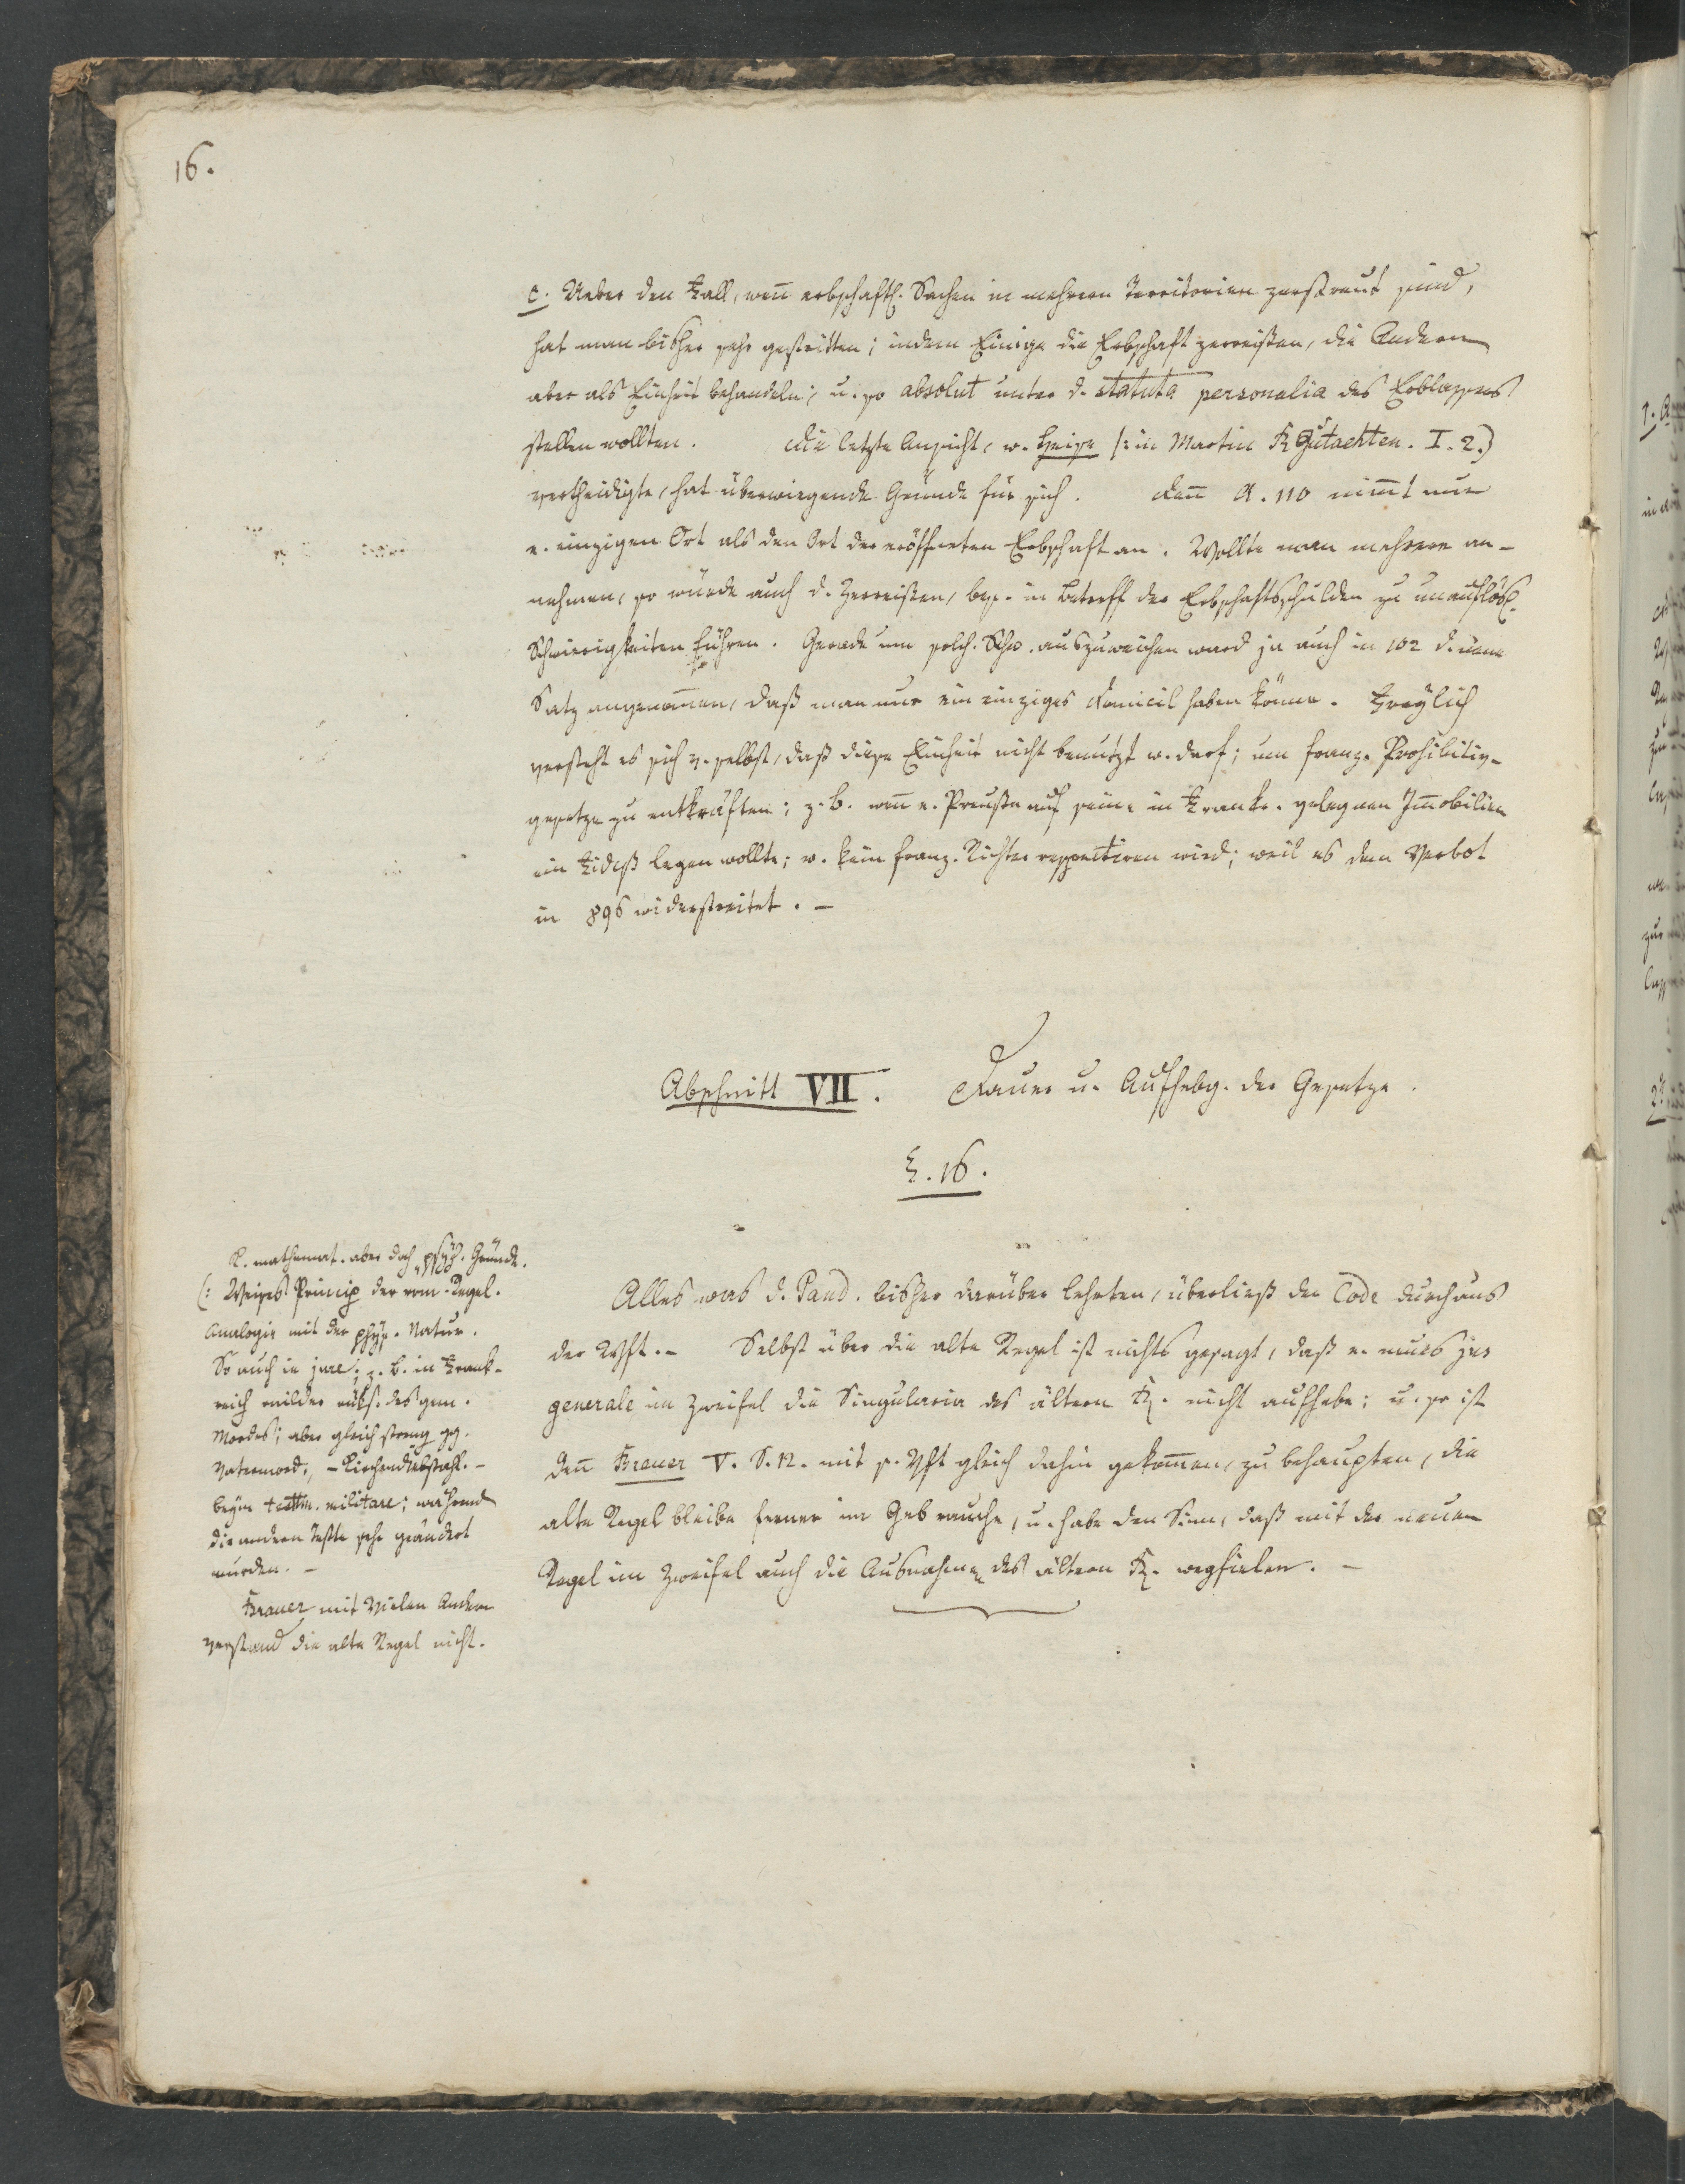 16.
c. Ueber den Fall, weñ erbschaftl. Sachen in mehrern Territorien zerstreut sind,
hat man bisher sehr gestritten; indem Einige die Erbschaft zerreißen, die Andern
aber als Einheit behandeln; u. so absolut unter d. statuta personalia des Erblassers
stellen wollten. Die letzte Ansicht, w. Heise (: in Martin R Gutachten. I. 2.)
vertheidigte, hat überwiegende Gründe für sich. Deñ A. 110 nim̃t nur
e. einzigen Ort als den Ort der eröffneten Erbschaft an. Wollte man mehrere an-
nehmen, so würde auch d. Zerreißen, bes. in Betreff der Erbschaftsschulden zu unauflösl.
Schwierigkeiten führen. Gerade um solch. Schw. auszuweichen ward ja auch in 102 d. neue
Satz angenom̃en, daß man nur ein einziges Domicil haben könne. Freylich
versteht es sich v. selbst, daß diese Einheit nicht benutzt w. darf; um franz. Prohibitiv-
gesetze zu entkräften; z. B. weñ e. Preuße auf seine in Frankr. gelegnen Im̃obilien
ein Fideß legen wollte; w. kein franz. Richter respectiren wird; weil es dem Verbot
in 896 widerstreitet. –
Abschnitt VII. Dauer u. Aufhebg. der Gesetze.
§. 16.
K. mathemat. aber doch psych. Gründe.
(: Weises Princip der röm. Regel.
Analogie mit der phys. Natur.
So auch in jure; z. B. in Frank-
reich milder rüks. des gem.
Mordes; aber gleich streng gg.
Vatermord, – Kirchendiebstahl. –
beym testm. militare; während
die andern Testte sehr geändert
wurden. –
Brauer mit Vielen Andern
verstand die alte Regel nicht.
Alles was d. Pand. bisher darüber lehrten, überließ der Code durchaus
der Wsft. – Selbst über die alte Regel ist nichts gesagt, daß e. neues jus
generale im Zweifel die Singularia des ältern R. nicht aufhebe; u. so ist
deñ Brauer V. S. 12. mit s. Wsft gleich dahin gekom̃en, zu behaupten, die
alte Regel bleibe ferner im Gebrauche, u. habe den Sinn, daß mit der neuen
Regel im Zweifel auch die Ausnahmen des ältern R. wegfielen. –